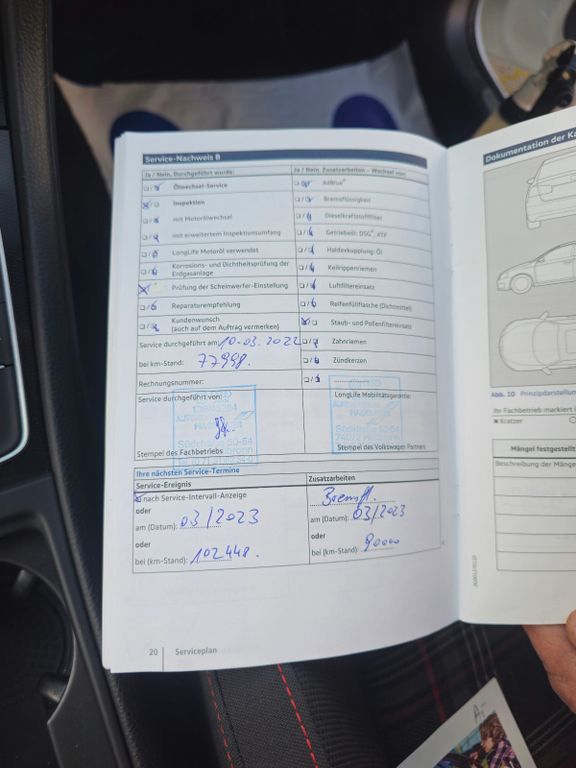 Service-Nachweis B
Ja / Nein, Durchgeführt wurde:
Ölwechsel-Service
Inspektion
mit Motorölwechsel
mit erweitertem Inspektionsumfang
LongLife Motoröl verwendet
Korrosions- und Dichtheitsprüfung der
Erdgasanlage
Prüfung der Scheinwerfer-Einstellung
Reparaturempfehlung
Kundenwunsch
(auch auf dem Auftrag vermerken)
Service durchgeführt am: 10.03.2022
bei km-Stand: 77448.
Rechnungsnummer:
Service durchgeführt von:
Stempel des Fachbetriebs
Ja / Nein, Zusatzarbeiten - Wechsel von:
AdBlue®
Bremsflüssigkeit
Dieselkraftstofffilter
Getriebeöl: DSG®, ATF
Haldexkupplung: Öl
Keilrippenriemen
Luftfiltereinsatz
Reifenfüllflasche (Dichtmittel)
Staub- und Pollenfiltereinsatz
Zahnriemen
Zündkerzen
LongLife Mobilitätsgarantie:
Stempel des Volkswagen Partners
Ihre nächsten Service-Termine
Service-Ereignis
nach Service-Intervall-Anzeige
oder
am (Datum): 03/2023
oder
bei (km-Stand): 102448.
Zusatzarbeiten
Bremsfl.
am (Datum): 03/2023
oder
bei (km-Stand): 90000
20
Serviceplan
Dokumentation der Ka
Abb. 10 Prinzipdarstellun
Ihr Fachbetrieb markiert
Kratzer
Mängel festgestellt
Beschreibung der Mänge